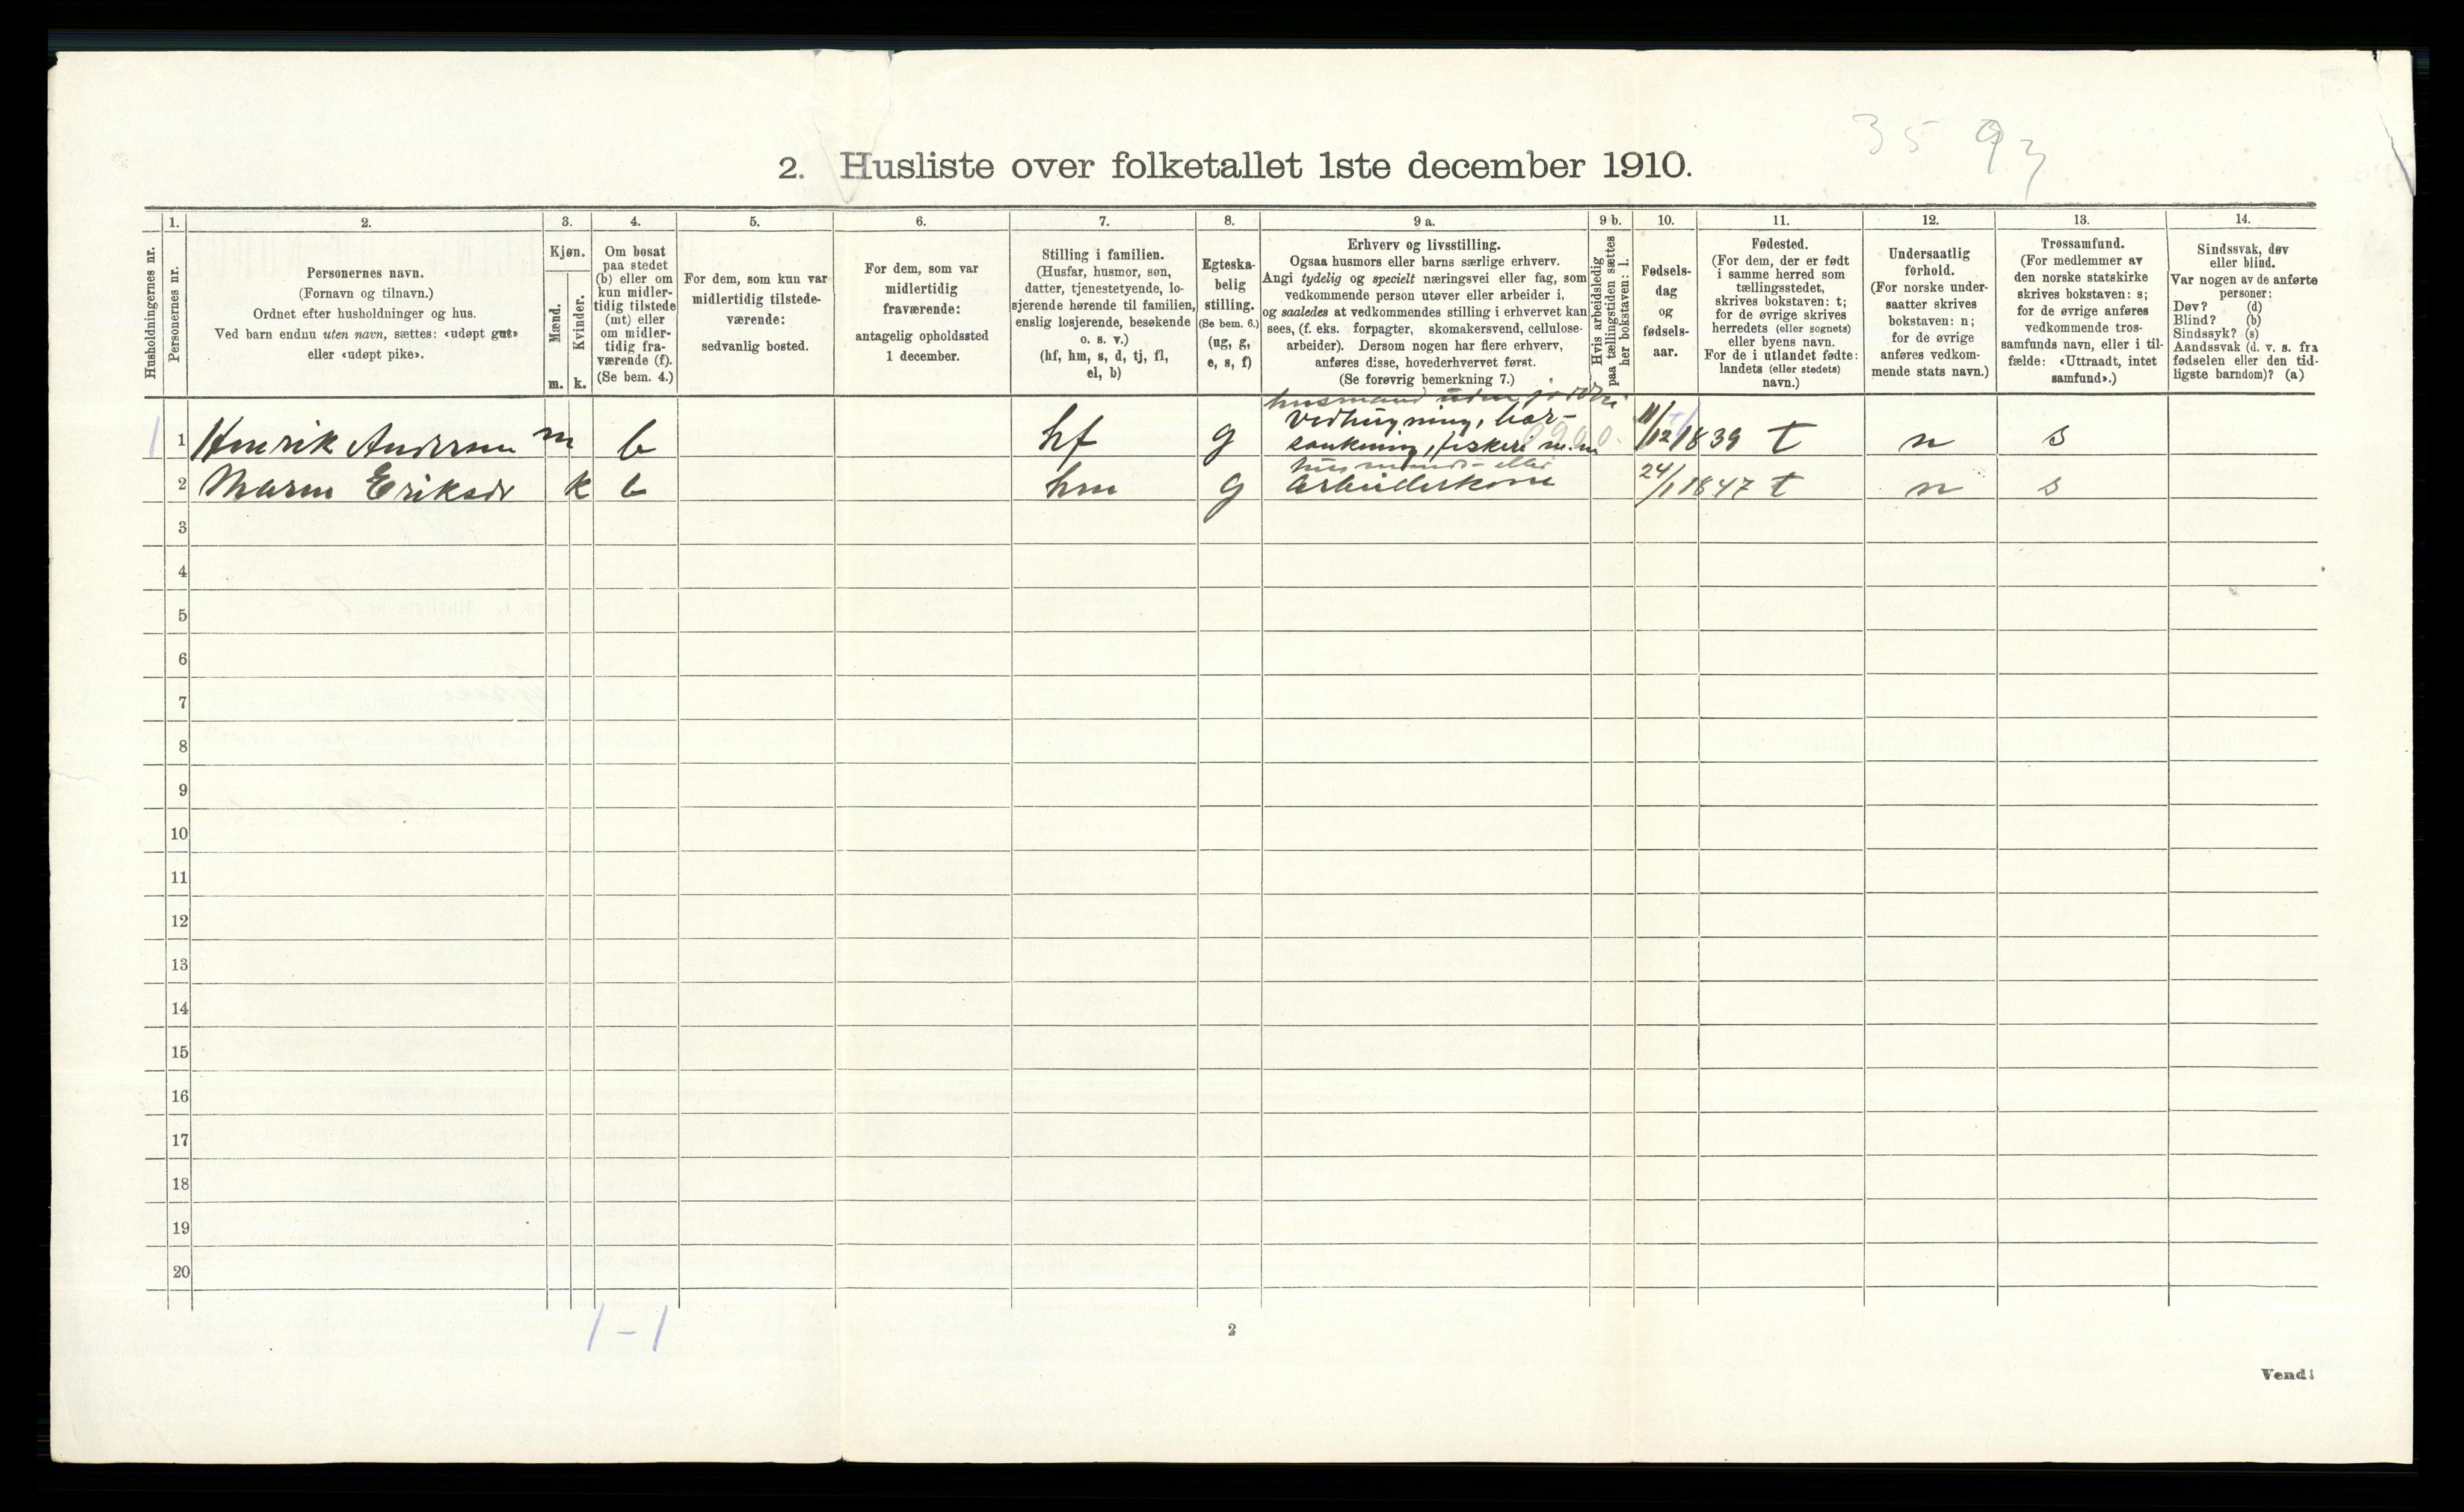 35 93
2. Husliste over folketallet 1ste december 1910.
1. 2. 3. 4. 5. 6. 7. 8. 9 a. 9 b. 10. 11. 12. 13. 14.
Husholdningernes nr.
Personernes nr.
Personernes navn.
(Fornavn og tilnavn.)
Ordnet efter husholdninger og hus.
Ved barn endnu uten navn, sættes: «udøpt gut»
eller «udøpt pike».
Kjøn.
Mænd.
Kvinder.
m. k.
Om bosat
paa stedet
(b) eller om
kun midler-
tidig tilstede
(mt) eller
om midler-
tidig fra-
værende (f).
(Se bem. 4.)
For dem, som kun var
midlertidig tilstede-
værende:
sedvanlig bosted.
For dem, som var
midlertidig
fraværende:
antagelig opholdssted
1 december.
Stilling i familien.
(Husfar, husmor, søn,
datter, tjenestetyende, lo-
sjerende hørende til familien,
enslig losjerende, besøkende
o. s. v.)
(hf, hm, s, d, tj, fl,
el, b)
Egteska-
belig
stilling.
(Se bem. 6.)
(ug, g,
e, s, f)
Erhverv og livsstilling.
Ogsaa husmors eller barns særlige erhverv.
Angi tydelig og specielt næringsvei eller fag, som
vedkommende person utøver eller arbeider i,
og saaledes at vedkommendes stilling i erhvervet kan
sees, (f. eks. forpagter, skomakersvend, cellulose-
arbeider). Dersom nogen har flere erhverv,
anføres disse, hovederhvervet først.
(Se forøvrig bemerkning 7.)
Hvis arbeidsledig
paa tællingstiden sættes
her bokstaven: l.
Fødsels-
dag
og
fødsels-
aar.
Fødested.
(For dem, der er født
i samme herred som
tællingsstedet,
skrives bokstaven: t;
for de øvrige skrives
herredets (eller sognets)
eller byens navn.
For de i utlandet fødte:
landets (eller stedets)
navn.)
Undersaatlig
forhold.
(For norske under-
saatter skrives
bokstaven: n;
for de øvrige
anføres vedkom-
mende stats navn.)
Trossamfund.
(For medlemmer av
den norske statskirke
skrives bokstaven: s;
for de øvrige anføres
vedkommende tros-
samfunds navn, eller i til-
fælde: «Uttraadt, intet
samfund».)
Sindssvak, døv
eller blind.
Var nogen av de anførte
personer:
Døv? (d)
Blind? (b)
Sindssyk? (s)
Aandssvak (d. v. s. fra
fødselen eller den tid-
ligste barndom)? (a)
husmand uden
vedhugning, bær-
1 1 Henrik Andersen m b hf g sankning, fiskeri m.m 11/12 1839 t n s
husmands- eller
2 Maren Eriksdr k b hm g arbeiderkone 24/1 1847 t n s
3
4
5
6
7
8
9
10
11
12
13
14
15
16
17
18
19
20
1 - 1
2
Vend!